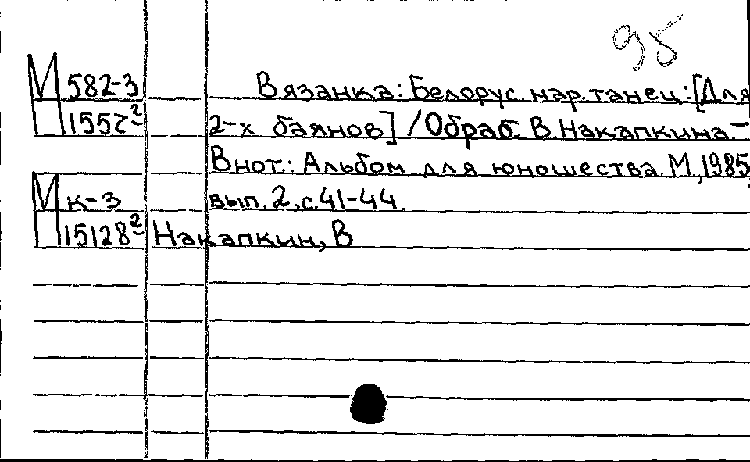 95
М 582-3 Вязанка: Белорус. нар. танец: [Для
П 1557² 2-х баянов] / Обраб. В Накапкина –
В нот.: Альбом для юношества М., 1985,
М к-3 вып. 2, с. 41-44
П 15128² Накапкин, В